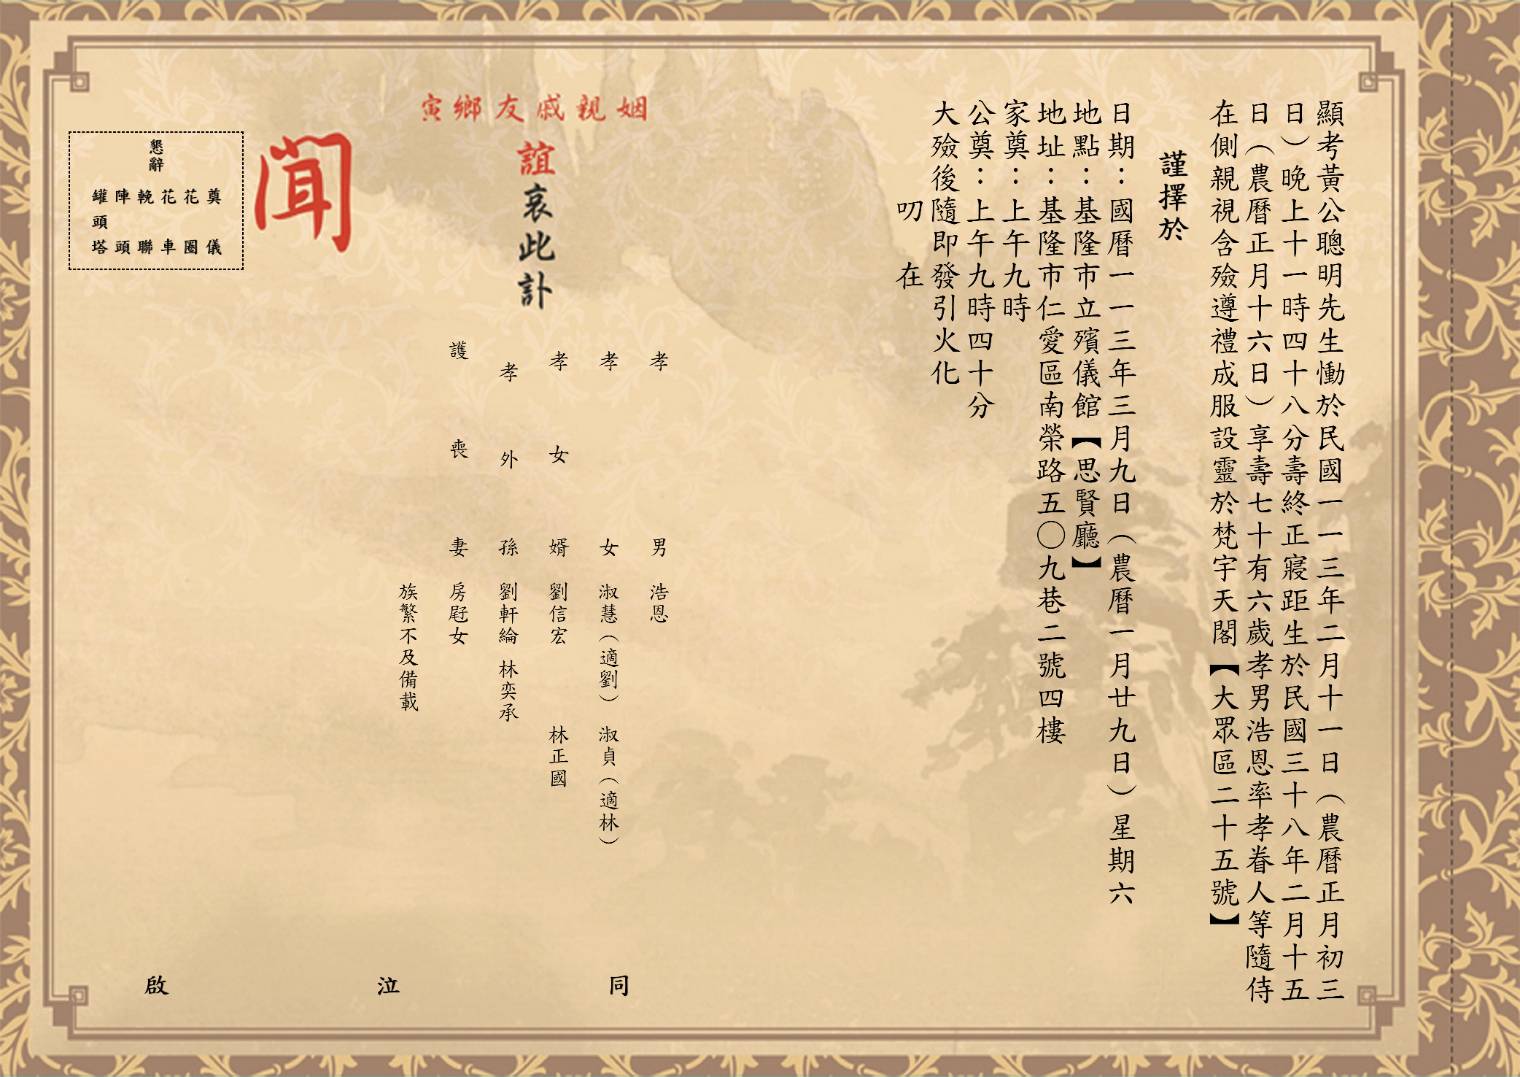 顯考黃公聰明先生慟於民國一一三年二月十一日（農曆正月初三
日）晚上十一時四十八分壽終正寢距生於民國三十八年二月十五
日（農曆正月十六日）享壽七十有六歲孝男浩恩率孝眷人等隨侍
在側親視含殮遵禮成服設靈於梵宇天閣【大眾區二十五號】
謹擇於
日期：國曆一一三年三月九日（農曆一月廿九日）星期六
地點：基隆市立殯儀館【思賢廳】
地址：基隆市仁愛區南榮路五〇九巷二號四樓
家奠：上午九時
公奠：上午九時四十分
大殮後隨即發引火化
叨在
姻親戚友鄉寅
誼哀此訃
聞
孝男 浩恩
孝女 淑慧（適劉） 淑貞（適林）
孝女婿 劉信宏 林正國
孝外孫 劉軒綸 林奕承
護喪妻 房屘女
族繁不及備載
同泣啟
懇辭
奠儀
花圈
花車
輓聯
陣頭
罐頭塔